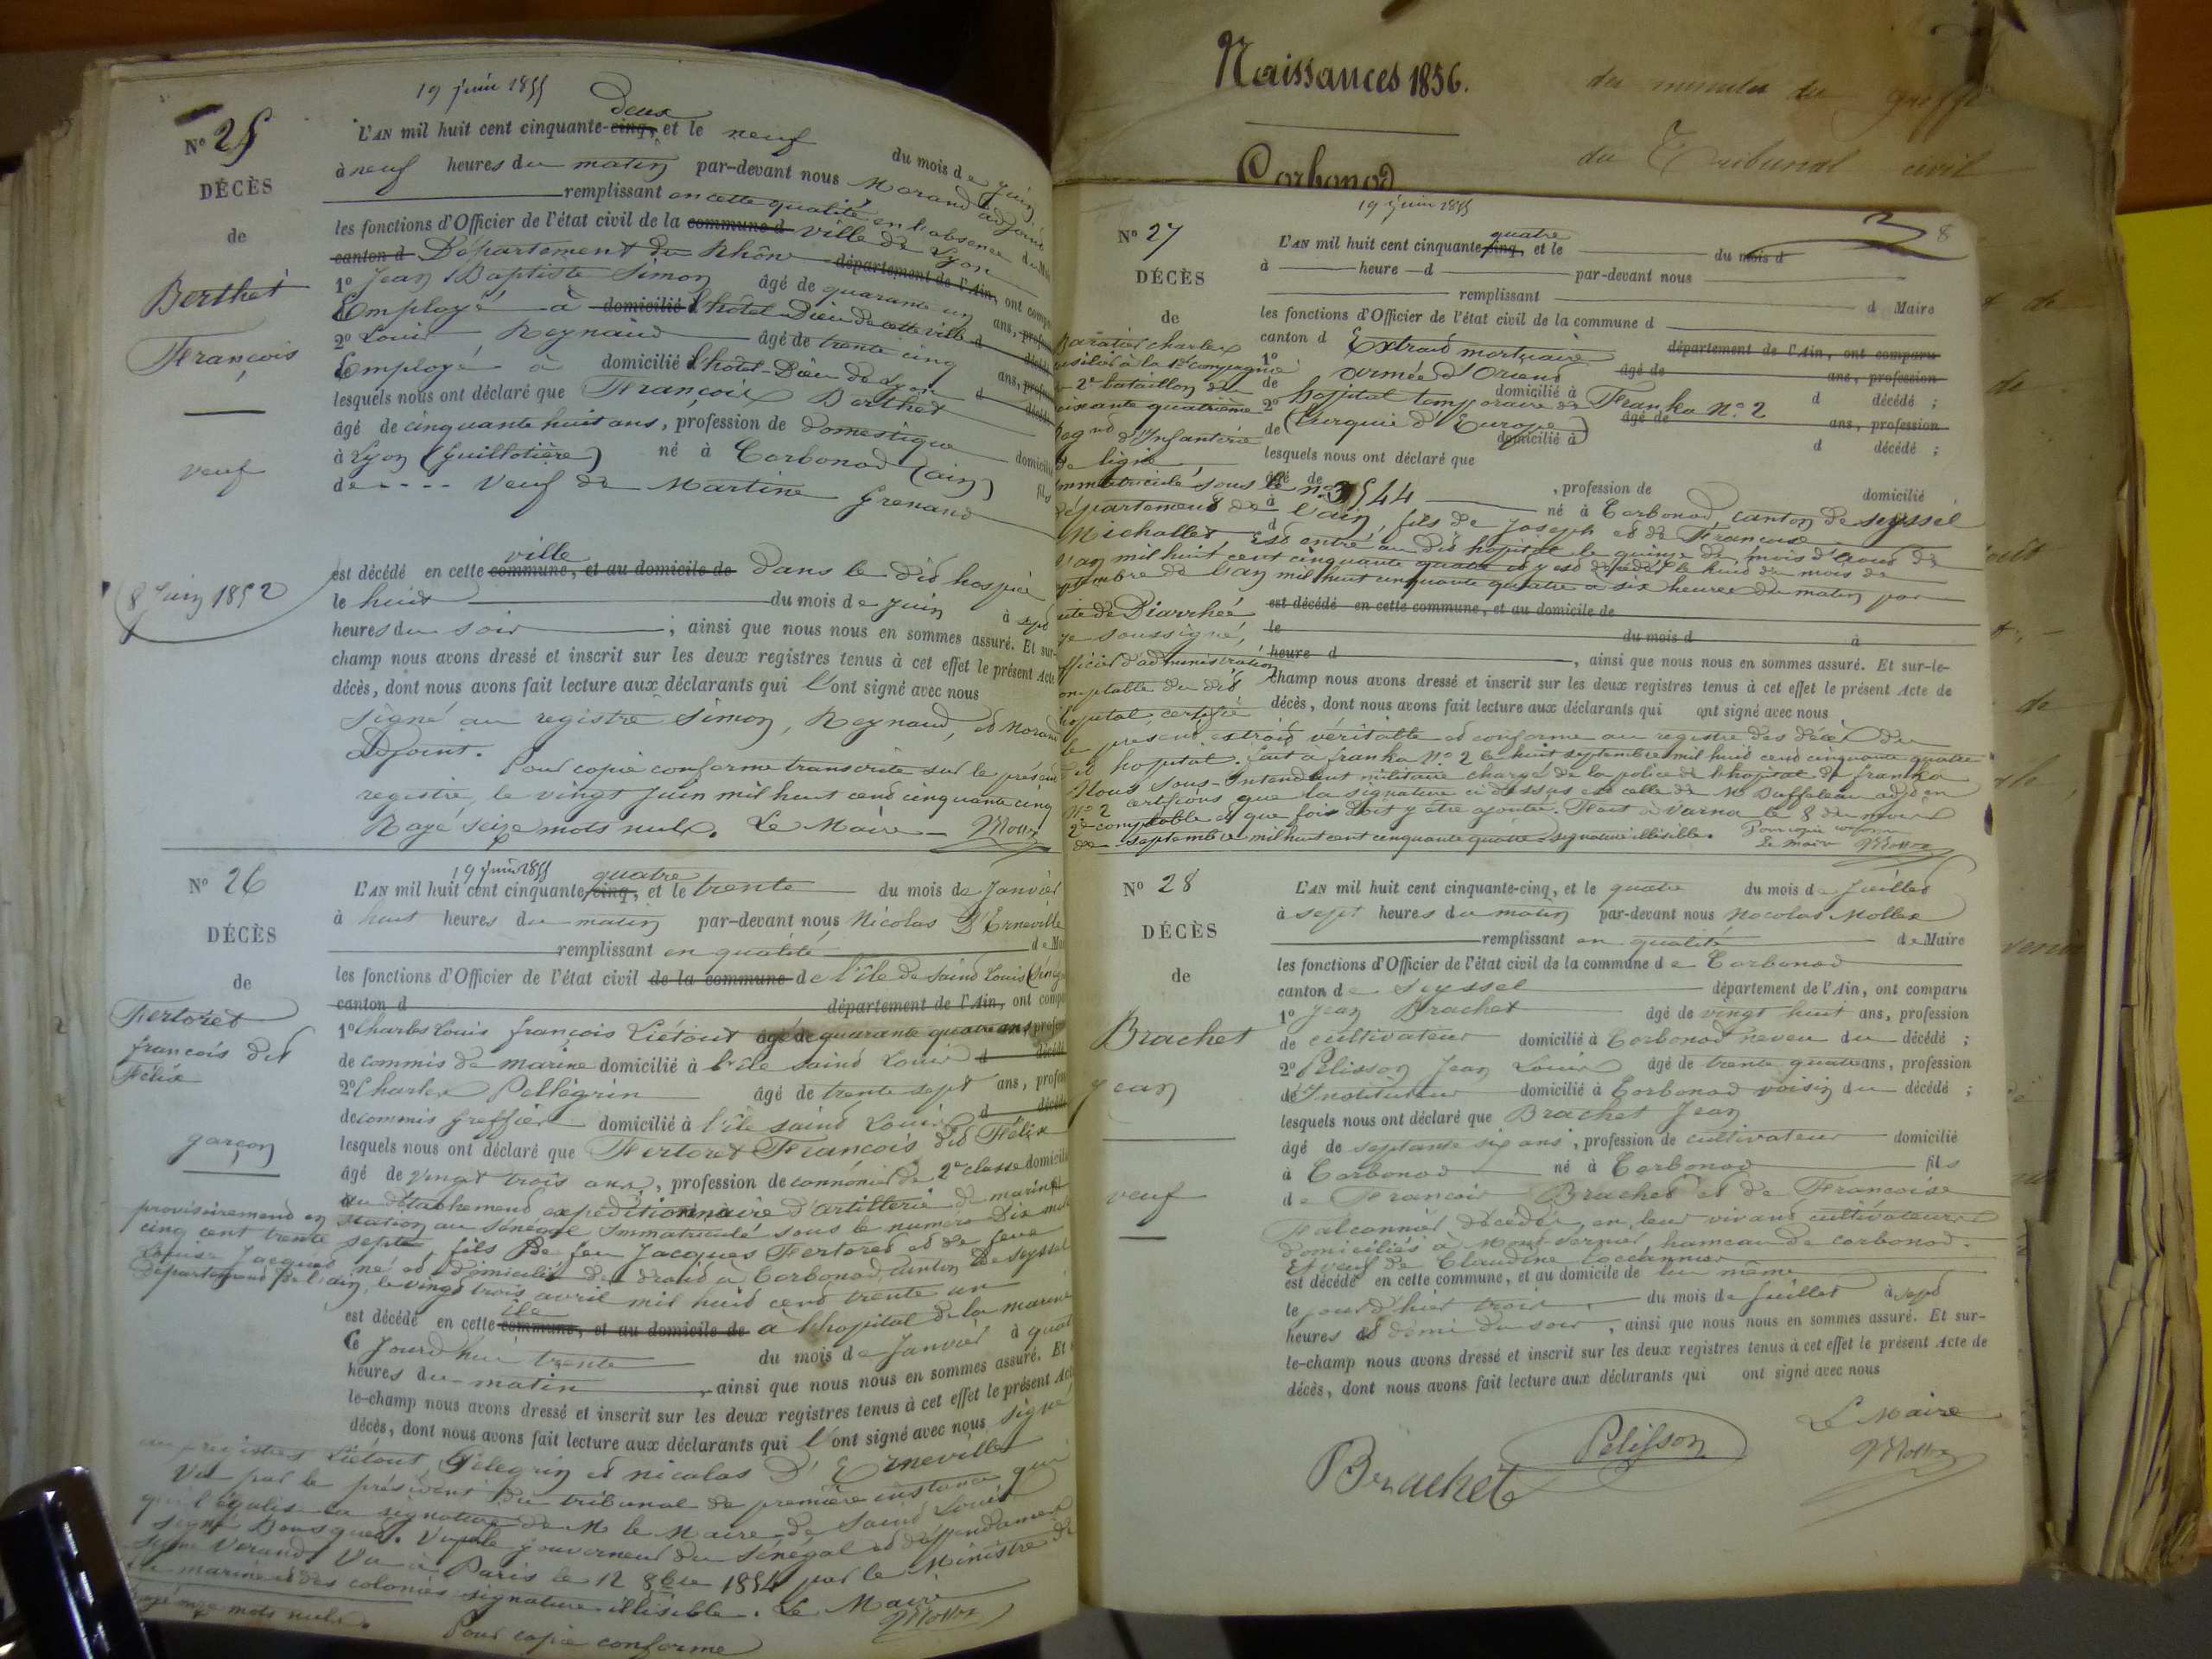 19 juin 1855
deux
N° 25
L'AN mil huit cent cinquante-cinq, et le neuf du mois de Juin
DÉCÈS
à neuf heures du matin par-devant nous Morand adjoint
de
remplissant en cette qualité en l'absence du
les fonctions d'Officier de l'état civil de la commune d ville de Lyon
canton d Département du Rhône département de l'Ain, ont comparu
Berthet
1° Jean Baptiste Simon âgé de quarante un ans,
Employé à domicilié l'hotel-Dieu de cette ville d
François
2° Louis Reynaud âgé de trente cinq ans,
Employé à domicilié l'hotel-Dieu de Lyon d
lesquels nous ont déclaré que François Berthet
âgé de cinquante huit ans, profession de domestique domicilié
veuf
à Lyon (Guillotière) né à Corbonod (ain) fils
de - - - - Veuf de Martine Grenand
ville
est décédé en cette commune, et au domicile de dans le dit hospice
8 Juin 1852
le huit du mois de Juin à sept
heures du soir ; ainsi que nous nous en sommes assuré. Et sur-
champ nous avons dressé et inscrit sur les deux registres tenus à cet effet le présent Acte
décès, dont nous avons fait lecture aux déclarants qui l'ont signé avec nous
signé au registre Simon, Reynaud, et Morand
adjoint.
Pour copie conforme transcrite sur le présent
registre, le vingt Juin mil huit cent cinquante cinq
Rayé seize mots nuls. Le Maire
19 juin 1855
quatre
N° 26
L'AN mil huit cent cinquante-cinq, et le trente du mois de Janvier
à huit heures du matin par-devant nous Nicolas D'Erneville
DÉCÈS
remplissant en qualité de
de
les fonctions d'Officier de l'état civil de la commune de l'île de Saint Louis
canton d département de l'Ain, ont
Fertoret
1° Charles Louis françois Liétout âgé de quarante quatre ans
françois dit
de commis de marine domicilié à l'île Saint Louis d
Félix
2° Charles Pellegrin âgé de trente sept ans,
de commis Greffier domicilié à l'île saint Louis d
garçon
lesquels nous ont déclaré que Fertoret François dit Félix
âgé de vingt trois ans, profession de cannonier de 2e classe domicilié
au détachement expéditionnaire d'artillerie de marine
provisoirement en station au Sénégal immatriculé sous le numero Dix mille
cinq cent trente sept, fils de feu Jacques Fertoret et de feue
Jacquet né et domicilié de droit à Corbonod, canton de Seyssel
département de l'ain, le vingt trois avril mil huit cent trente un
île
est décédé en cette commune, et au domicile de à l'hopital de la marine
Ce Jourd'hui trente du mois de Janvier à
heures du matin, ainsi que nous nous en sommes assuré. Et
le-champ nous avons dressé et inscrit sur les deux registres tenus à cet effet le présent
décès, dont nous avons fait lecture aux déclarants qui l'ont signé avec nous signé
registres Liétout, Pelegrin et nicolas D'Erneville
Vu par le président du tribunal de première instance qui
légalise la signature de M le Maire de Saint Louis
signé Vu par le gouverneur du Sénégal et dépendances
signé Verand. Vu à Paris le 12 8bre 1854 par le Ministre de
la marine et des colonies signature illisible. Le Maire
onze mots nuls.
Pour copie conforme
Naissances 1856.
des minutes du greffe
du Tribunal civil
Corbonod
19 juin 1855
8
quatre
N° 27
L'AN mil huit cent cinquante-cinq, et le du mois d
DÉCÈS
à heure d par-devant nous
remplissant d Maire
de
les fonctions d'Officier de l'état civil de la commune d
Baratier charles
canton d Extrait mortuaire département de l'Ain, ont comparu
fusilier à la 1re compagnie
1° armée d'Orient âgé de ans, profession
2e bataillon du
de hopital temporaire de domicilié à Franka N° 2 d décédé ;
soixante quatrième
2° âgé de ans, profession
d'Infanterie
de (Turquie d'Europe) domicilié à d décédé ;
de ligne
lesquels nous ont déclaré que
immatriculé sous le n° 3544 âgé de , profession de domicilié
département de l'ain, né à Corbonod canton de seyssel
fils de Joseph et de Françoise
Michallet est entré au dit hopital le quinze du mois d'août de
l'an mil huit cent cinquante quatre et y est décédé le huit du mois de
septembre de l'an mil huit cinquante quatre à six heures du matin par
suite de Diarrhée est décédé en cette commune, et au domicile de
je soussigné, le du mois d à
officier d'administration heure d , ainsi que nous nous en sommes assuré. Et sur-le-
comptable du dit champ nous avons dressé et inscrit sur les deux registres tenus à cet effet le présent Acte de
hopital, certifie décès, dont nous avons fait lecture aux déclarants qui ont signé avec nous
le present extrait véritable et conforme au registre des décès du
dit hopital. fait à franka N° 2 le huit septembre mil huit cent cinquante quatre
Nous Sous-Intendant militaire chargé de la police de l'hopital de franka
N° 2 certifions que la signature ci dessus est celle de M
comptable et que fois doit y être ajoutée. Fait à Varna le 8 du mois
de septembre mil huit cent cinquante quatre signature illisible. Pour copie conforme
Le maire
N° 28
L'AN mil huit cent cinquante-cinq, et le quatre du mois de Juillet
à sept heures du matin par-devant nous Nocolas Mollex
DÉCÈS
remplissant en qualité de Maire
les fonctions d'Officier de l'état civil de la commune de Corbonod
de
canton de Seyssel département de l'Ain, ont comparu
1° Jean Brachet âgé de vingt huit ans, profession
Brachet
de cultivateur domicilié à Corbonod neveu du décédé ;
2° Pelisson Jean Louis âgé de trente quatre ans, profession
Jean
de Instituteur domicilié à Corbonod voisin du décédé ;
lesquels nous ont déclaré que Brachet Jean
âgé de septante six ans, profession de cultivateur domicilié
à Corbonod né à Corbonod fils
veuf
de François Brachet et de Françoise
Falconnier décédés, en leur vivant cultivateurs
domiciliés à Mont-vernier hameau de corbonod.
Et veuf de Claudine
est décédé en cette commune, et au domicile de lui même
le jour d'hier trois du mois de Juillet à sept
heures et demi du soir, ainsi que nous nous en sommes assuré. Et sur-
le-champ nous avons dressé et inscrit sur les deux registres tenus à cet effet le présent Acte de
décès, dont nous avons fait lecture aux déclarants qui ont signé avec nous
Le Maire
Pelisson
Brachet